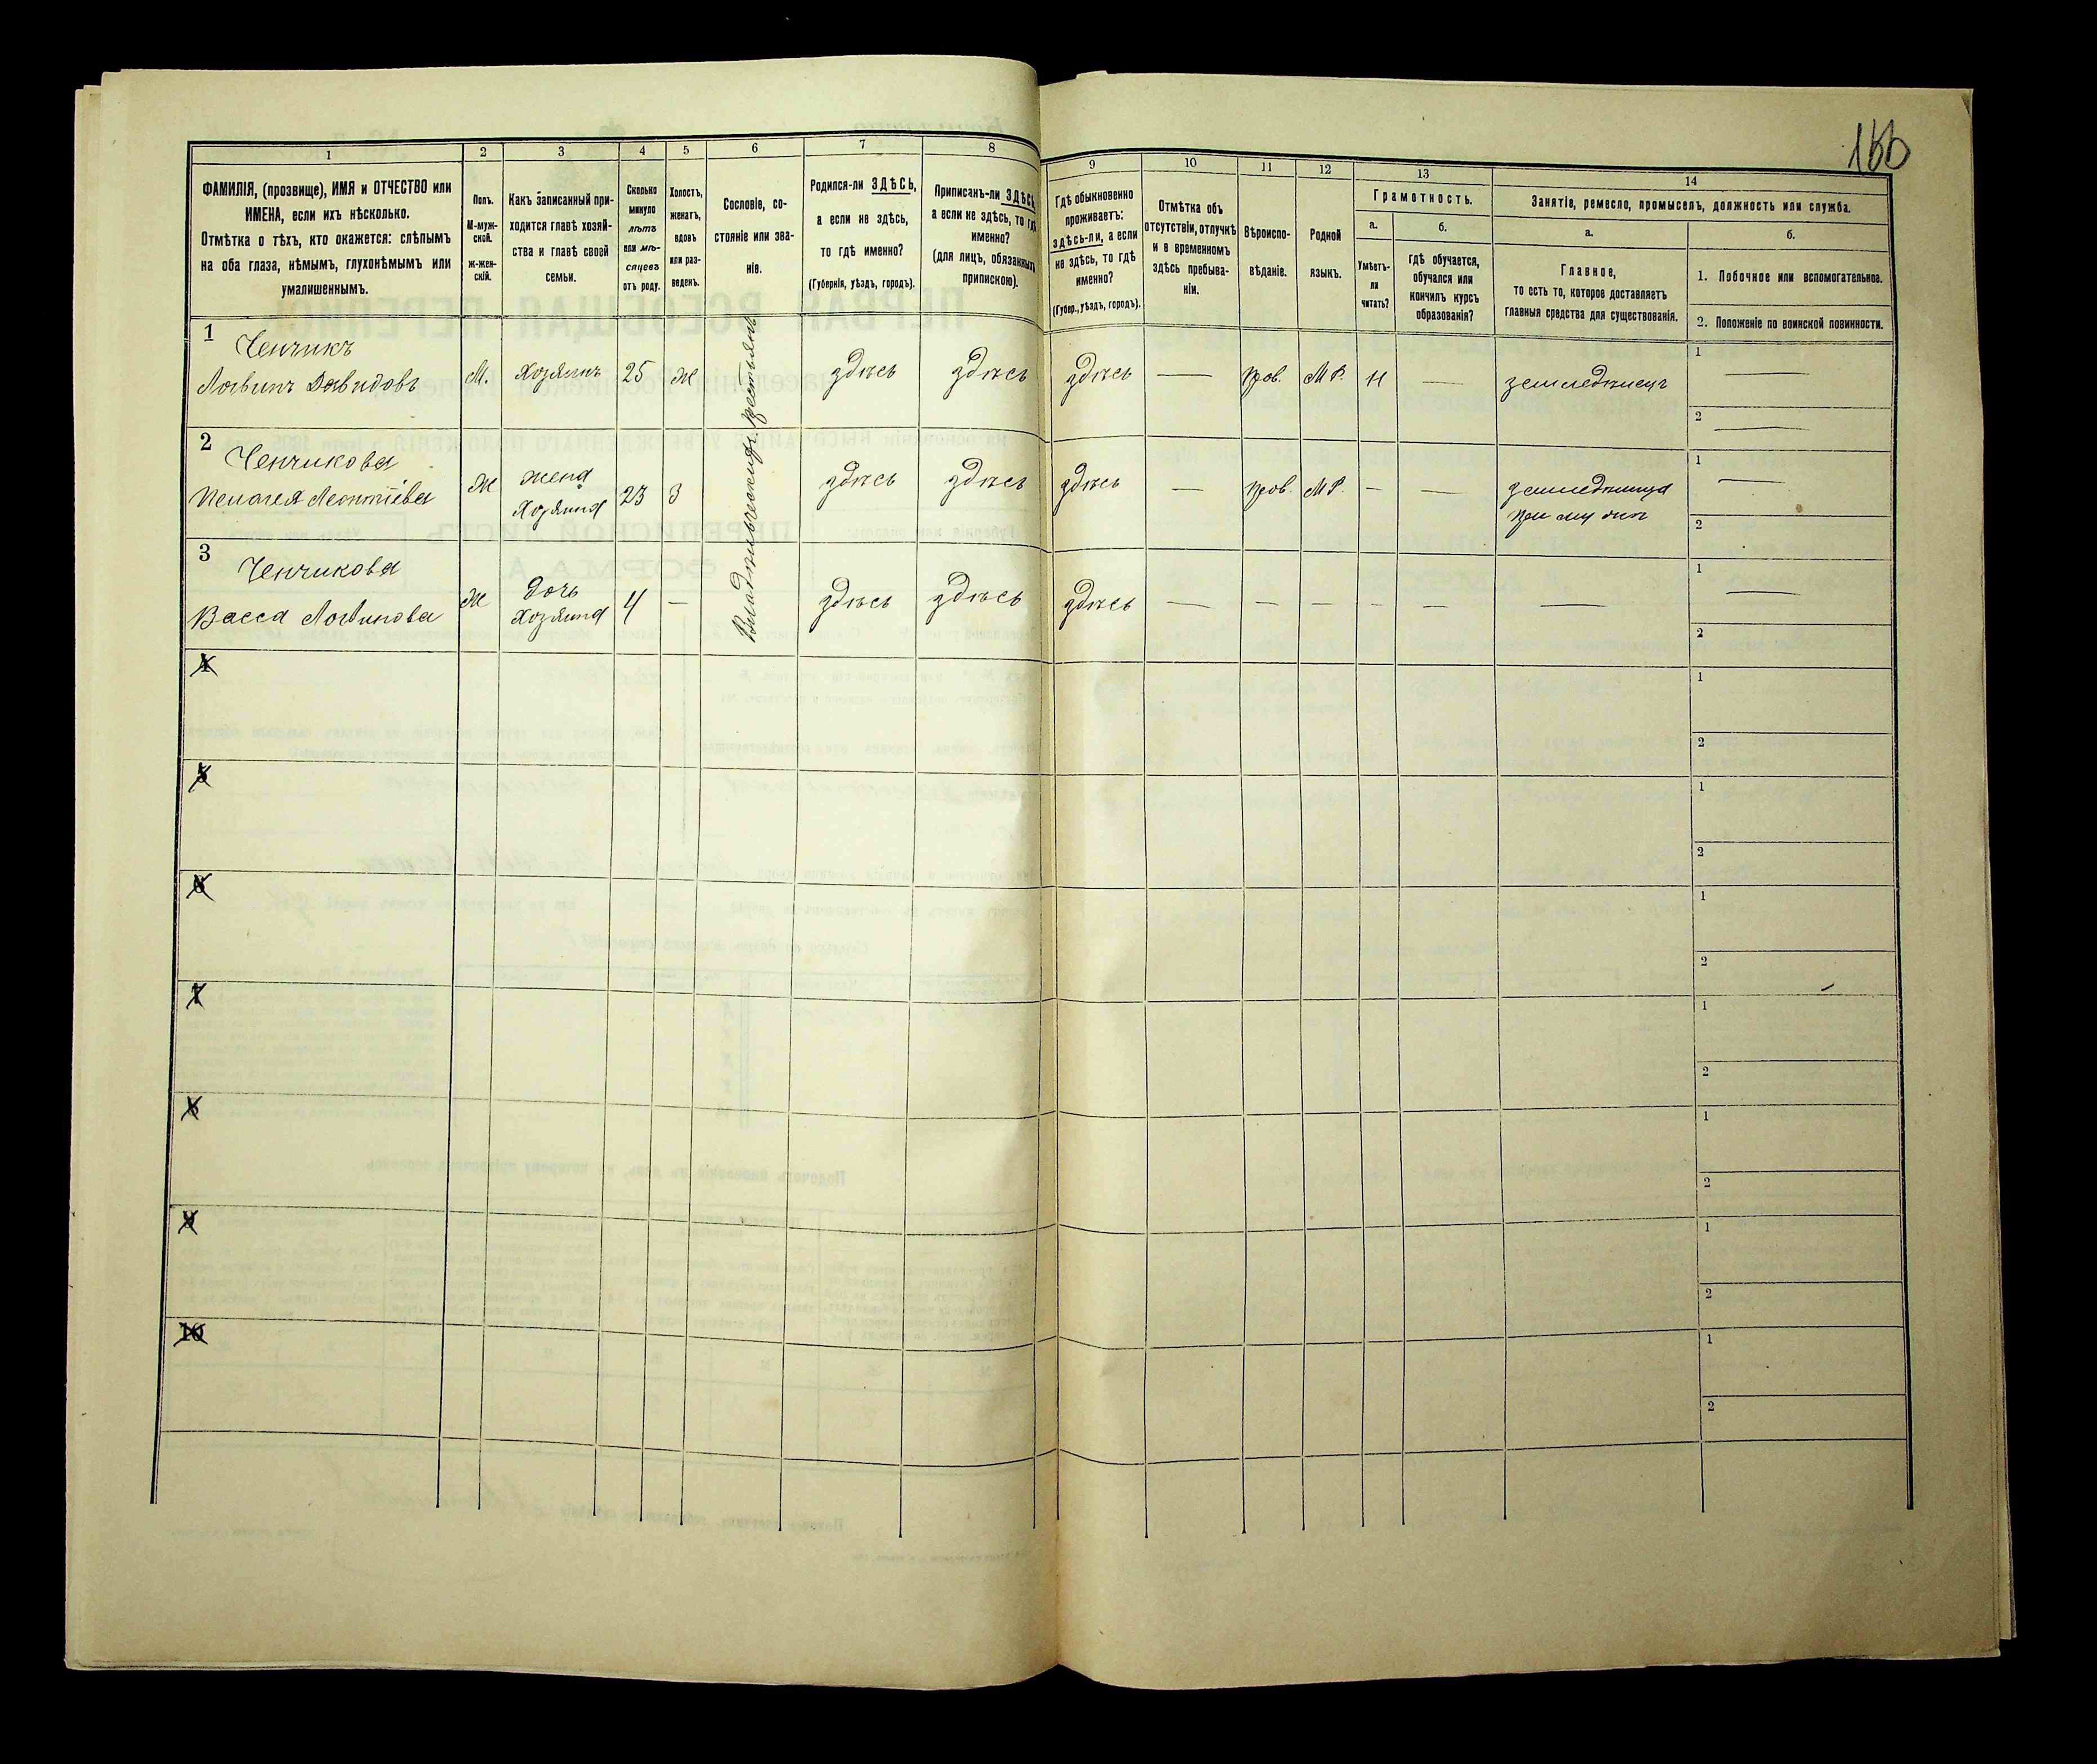 160
1
2
3
4
5
6
7
8
9
10
11
12
13
14
ФАМИЛІЯ, (прозвище), ИМЯ и ОТЧЕСТВО или
ИМЕНА, если ихъ нѣсколько.
Отмѣтка о тѣхъ, кто окажется: слѣпымъ
на оба глаза, нѣмымъ, глухонѣмымъ или
умалишеннымъ.
Полъ.
М-муж-
ской.
Ж-жен-
скій.
Какъ записанный при-
ходится главѣ хозяй-
ства и главѣ своей
семьи.
Сколько
минуло
лѣтъ
или мѣ-
сяцевъ
отъ роду.
Холостъ,
женатъ,
вдовъ
или раз-
веденъ.
Сословіе, со-
стояніе или зва-
ніе.
Родился-ли ЗДѢСЬ,
а если не здѣсь,
то гдѣ именно?
(Губернія, уѣздъ, городъ).
Приписанъ-ли ЗДѢСЬ,
а если не здѣсь, то гдѣ
именно?
(для лицъ, обязанныхъ
припискою).
Гдѣ обыкновенно
проживаетъ:
здѣсь-ли, а если
не здѣсь, то гдѣ
именно?
(Губер., уѣздъ, городъ).
Отмѣтка объ
отсутствіи, отлучкѣ
и о временномъ
здѣсь пребыва-
ніи.
Вѣроиспо-
вѣданіе.
Родной
языкъ.
Грамотность.
а.
Умѣетъ-
ли
читать?
б.
гдѣ обучается,
обучался или
кончилъ курсъ
образованія?
Занятіе, ремесло, промыселъ, должность или служба.
а.
Главное,
то есть то, которое доставляетъ
главныя средства для существованія.
б.
1. Побочное или вспомогательное.
2. Положеніе по воинской повинности.
1
Ченчикъ
Логвинъ Давидовъ
М.
Хозяинъ
25
Ж
здѣсь
здѣсь
здѣсь
—
прав.
М Р.
Н
—
земледѣлецъ
1
—
2
—
2
Ченчикова
Пелагея Леонтіева
Ж
жена
Хозяина
23
З
здѣсь
здѣсь
здѣсь
—
прав.
М Р.
—
—
земледѣлица
при мужѣ
1
—
2
3
Ченчикова
Васса Логвинова
Ж
дочь
Хозяина
4
—
здѣсь
здѣсь
здѣсь
—
—
—
—
—
—
1
—
2
Владѣльческихъ крестьянъ
4
1
2
5
1
2
6
1
2
7
1
2
8
1
2
9
1
2
10
1
2